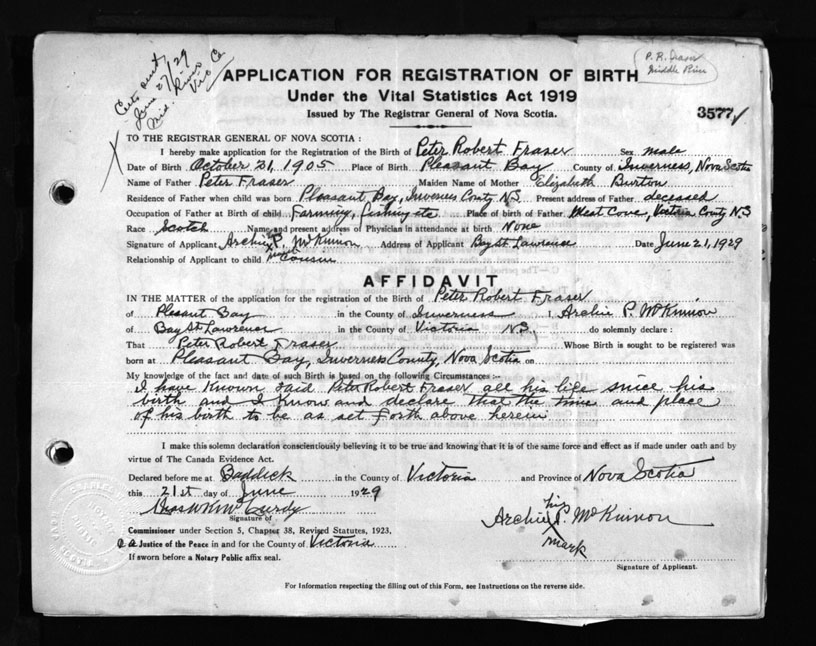 Cert. sent
June 27/29
Mid. River
Vic Co
P. R. Fraser
Middle River
APPLICATION FOR REGISTRATION OF BIRTH
Under the Vital Statistics Act 1919
Issued by The Registrar General of Nova Scotia.
3577
TO THE REGISTRAR GENERAL OF NOVA SCOTIA :
I hereby make application for the Registration of the Birth of Peter Robert Fraser Sex male
Date of Birth October 21, 1905 Place of Birth Pleasant Bay County of Inverness, Nova Scotia
Name of Father Peter Fraser Maiden Name of Mother Elizabeth Burton
Residence of Father when child was born Pleasant Bay, Inverness County N.S. Present address of Father deceased
Occupation of Father at Birth of child farming, fishing etc Place of birth of Father Meat Cove, Victoria County N.S
Race Scotch Name and present address of Physician in attendance at birth None
Signature of Applicant Archie P. McKinnon Address of Applicant Bay St Lawrence Date June 21, 1929
Relationship of Applicant to child Cousin
AFFIDAVIT
IN THE MATTER of the application for the registration of the Birth of Peter Robert Fraser
of Pleasant Bay in the County of Inverness I, Archie P. McKinnon
of Bay St Lawrence in the County of Victoria N.S. do solemnly declare :
That Peter Robert Fraser Whose Birth is sought to be registered was
born at Pleasant Bay, Inverness County, Nova Scotia on
My knowledge of the fact and date of such Birth is based on the following Circumstances :-
I have known said Peter Robert Fraser all his life since his
birth and I know and declare that the time and place
of his birth to be as set forth above herein
I make this solemn declaration conscientiously believing it to be true and knowing that it is of the same force and effect as if made under oath and by
virtue of The Canada Evidence Act.
Declared before me at Baddeck in the County of Victoria and Province of Nova Scotia
this 21st day of June 1929
Signature of
Archie P. McKinnon
his
mark
Commissioner under Section 5, Chapter 38, Revised Statutes, 1923.
a Justice of the Peace in and for the County of Victoria
If sworn before a Notary Public affix seal.
Signature of Applicant.
For Information respecting the filling out of this Form, see Instructions on the reverse side.